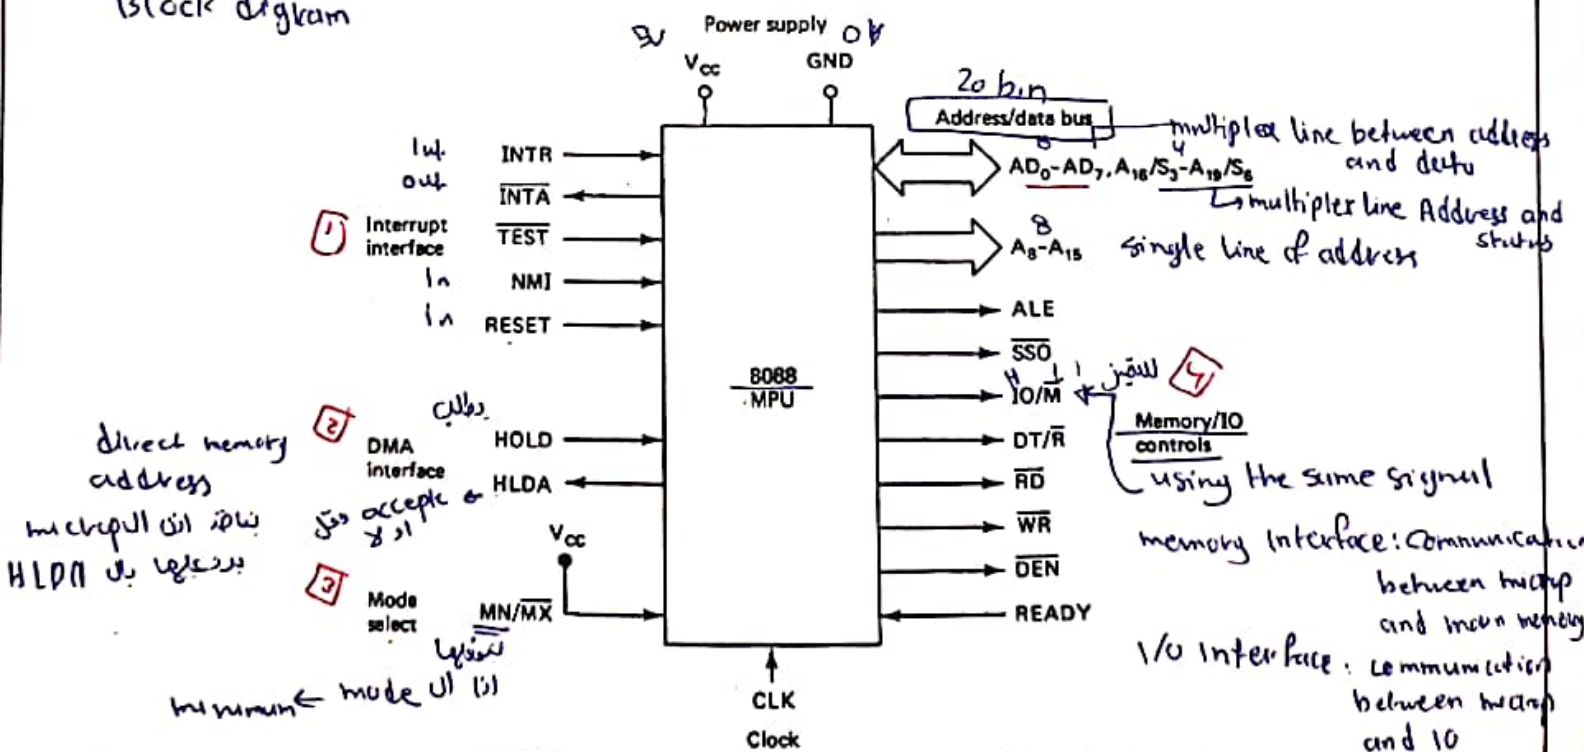 Block digram
5V Power supply 0V
Vcc GND
20 bin
Address/data bus
multiplex line between address
and data
8 4
AD0-AD7, A16/S3-A19/S6
multiplex line Address and
status
8
A8-A15 single line of address
ALE
SSO
H L
IO/M للتمييز 4
Memory/IO
controls
using the same signal
DT/R
RD
WR
DEN
READY
memory Interface: Communication
between microp
and main memory
I/O Interface: communication
between microp
and IO
INTR
out INTA
1 Interrupt
interface
TEST
In NMI
In RESET
8088
MPU
2 DMA
interface
بطلب
HOLD
HLDA
accepte
او لا
direct memory
address
HLDA
Vcc
3 Mode
select
MN/MX
اذا ال mode
minimum
CLK
Clock